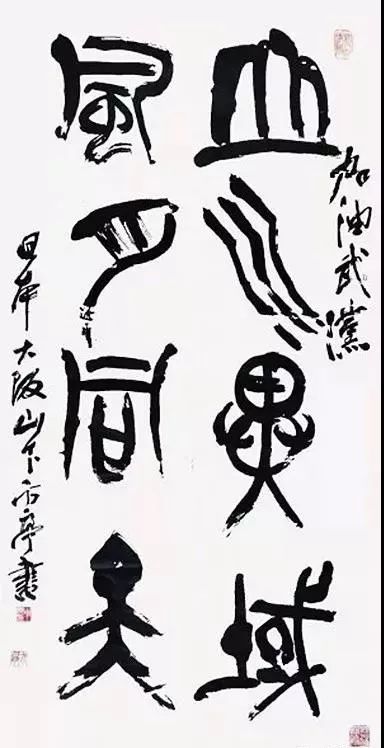 加油武漢
山川異域
風月同天
日本大阪山下方亭書